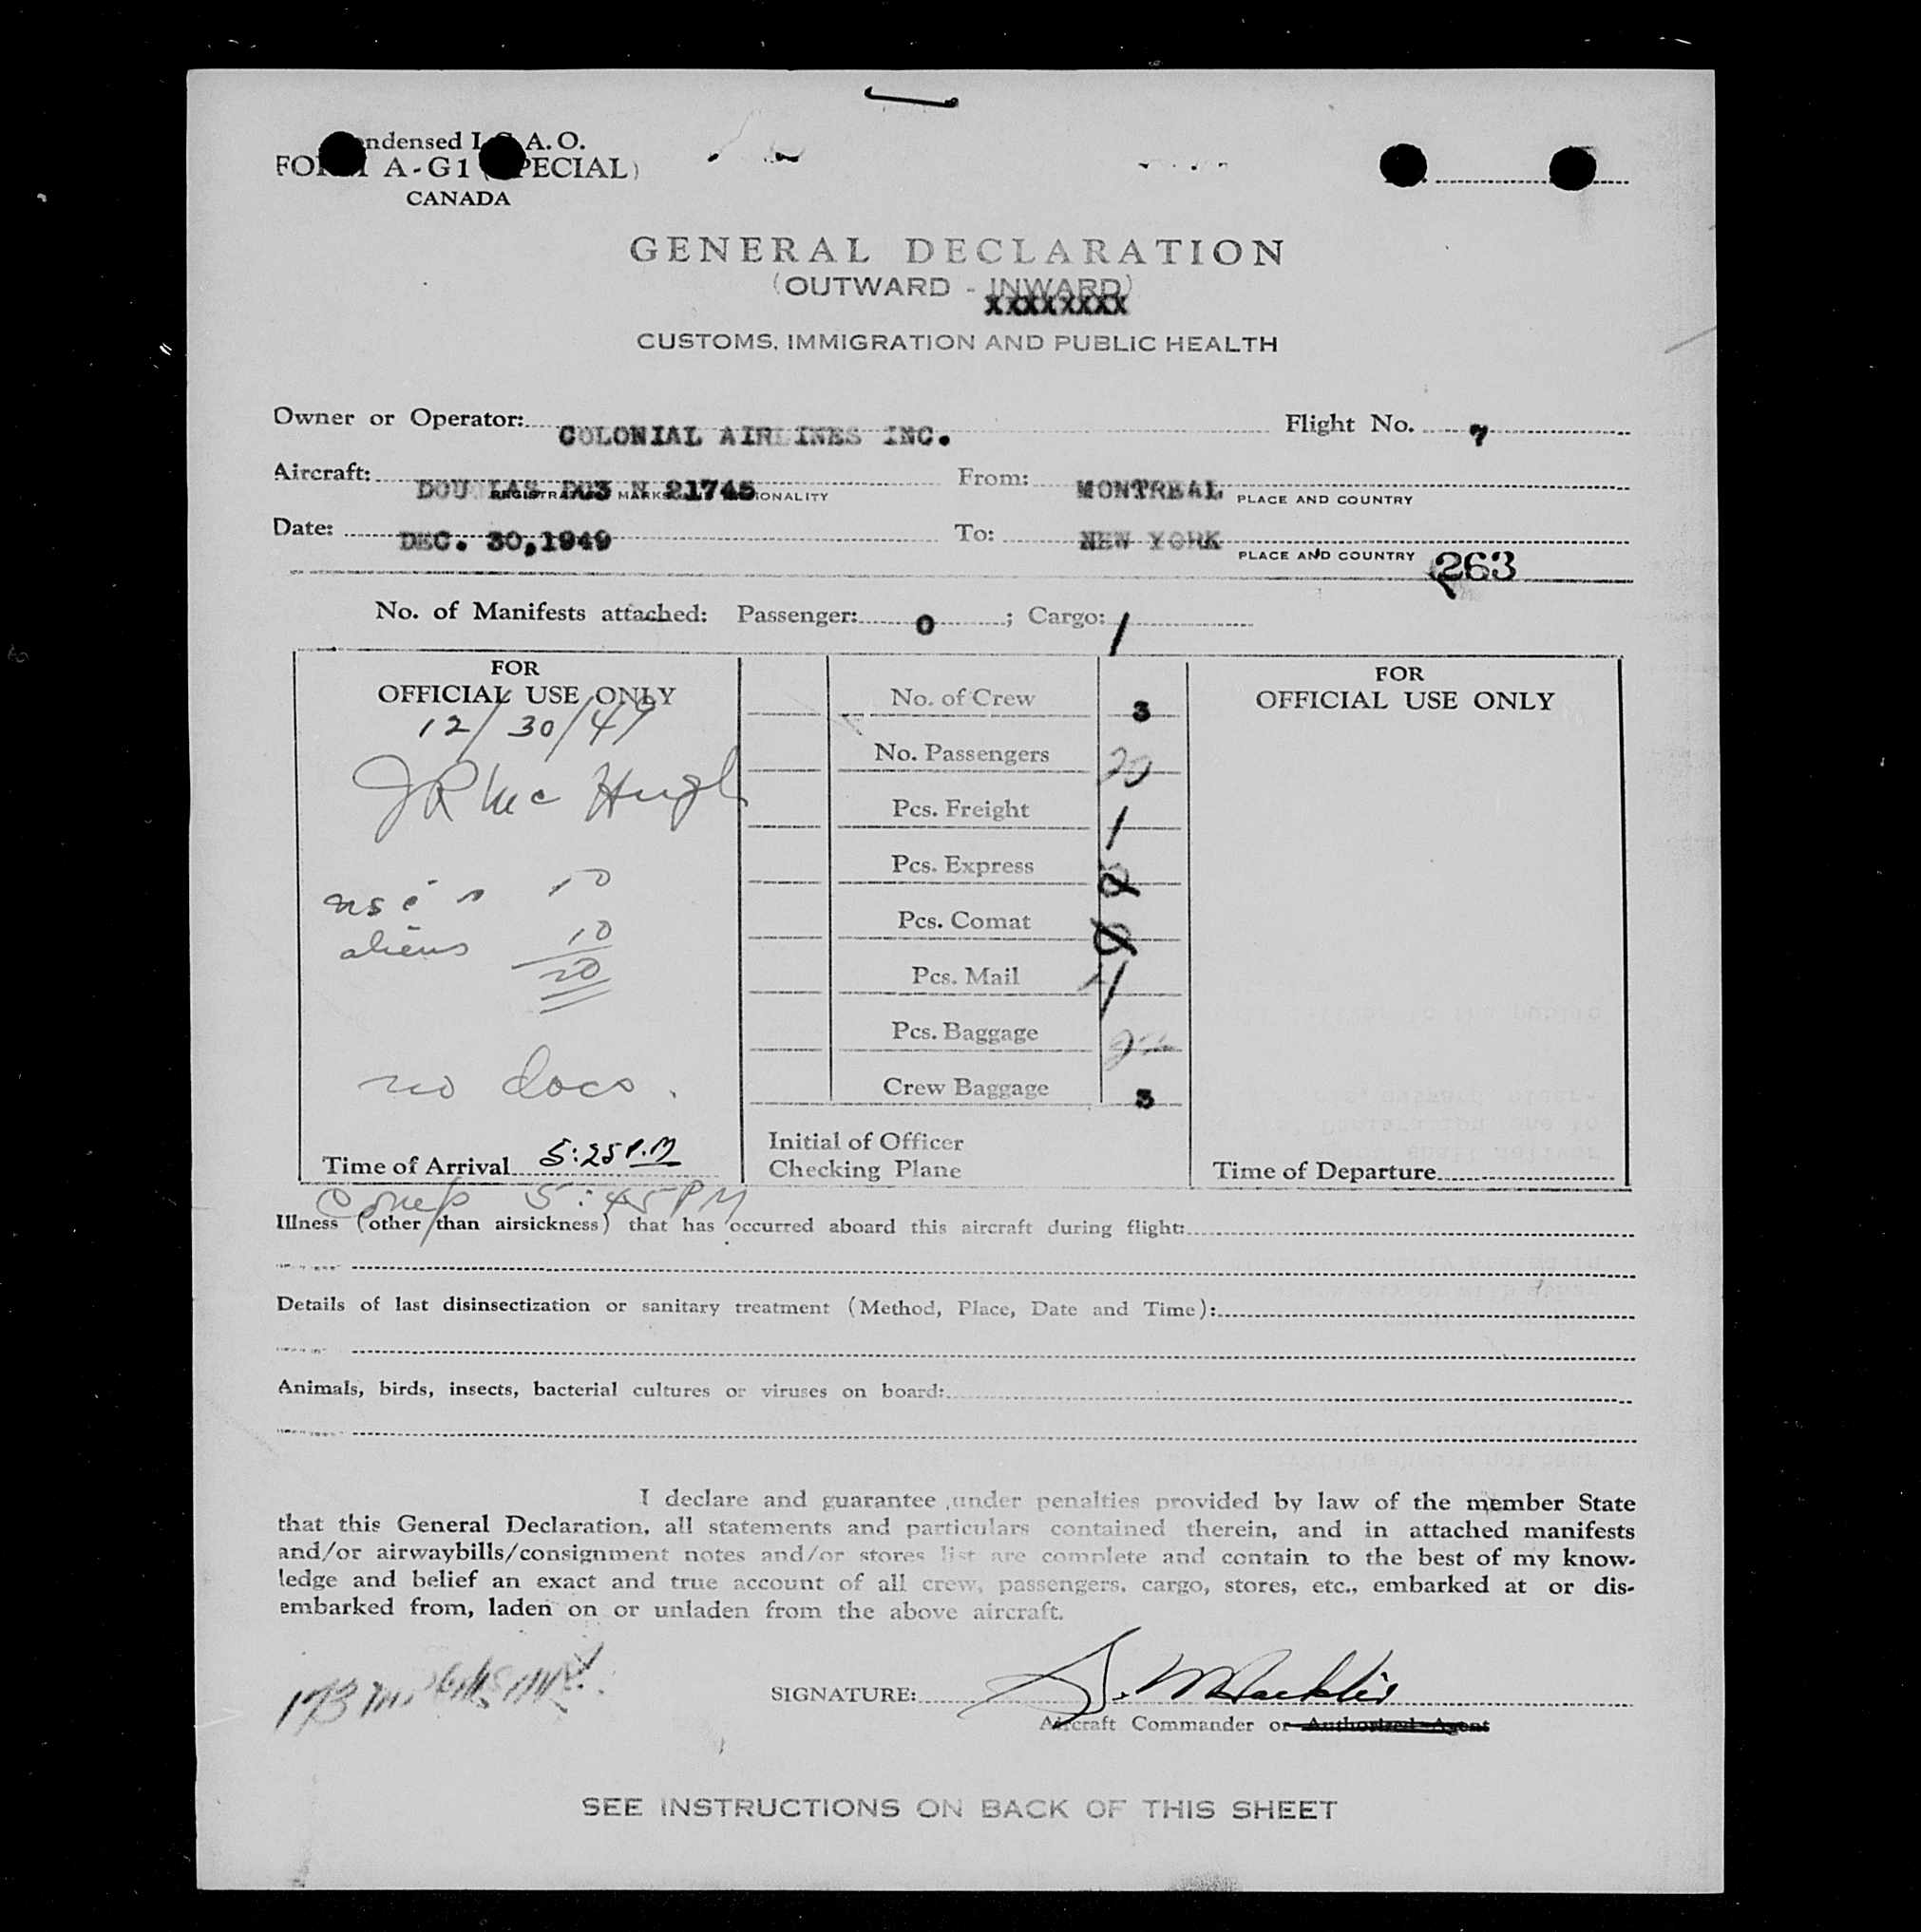 Condensed I.C.A.O.
FORM A-G1 (SPECIAL)
CANADA
GENERAL DECLARATION
(OUTWARD - INWARD)
XXXXXXXX
CUSTOMS, IMMIGRATION AND PUBLIC HEALTH
Owner or Operator: COLONIAL AIRLINES INC. Flight No. 7
Aircraft: DOUGLAS DC3 N 21745 From: MONTREAL PLACE AND COUNTRY
Date: DEC. 30,1949 To: NEW YORK
PLACE AND COUNTRY 263
No. of Manifests attached: Passenger: 0 ; Cargo: 1
FOR
OFFICIAL USE ONLY
12/30/49
JR McHugh
10
aliens 10
20
no docs.
Time of Arrival 5:25 P.M
No. of Crew 3
No. Passengers 20
Pcs. Freight 1
Pcs. Express
Pcs. Comat
Pcs. Mail 1
Pcs. Baggage
Crew Baggage 3
Initial of Officer
Checking Plane
FOR
OFFICIAL USE ONLY
Time of Departure
5:45 PM
Illness (other than airsickness) that has occurred aboard this aircraft during flight:
Details of last disinsectization or sanitary treatment (Method, Place, Date and Time):
Animals, birds, insects, bacterial cultures or viruses on board:
I declare and guarantee under penalties provided by law of the member State
that this General Declaration, all statements and particulars contained therein, and in attached manifests
and/or airwaybills/consignment notes and/or stores list are complete and contain to the best of my know-
ledge and belief an exact and true account of all crew, passengers, cargo, stores, etc., embarked at or dis-
embarked from, laden on or unladen from the above aircraft.
SIGNATURE:
Aircraft Commander or Authorized Agent
SEE INSTRUCTIONS ON BACK OF THIS SHEET